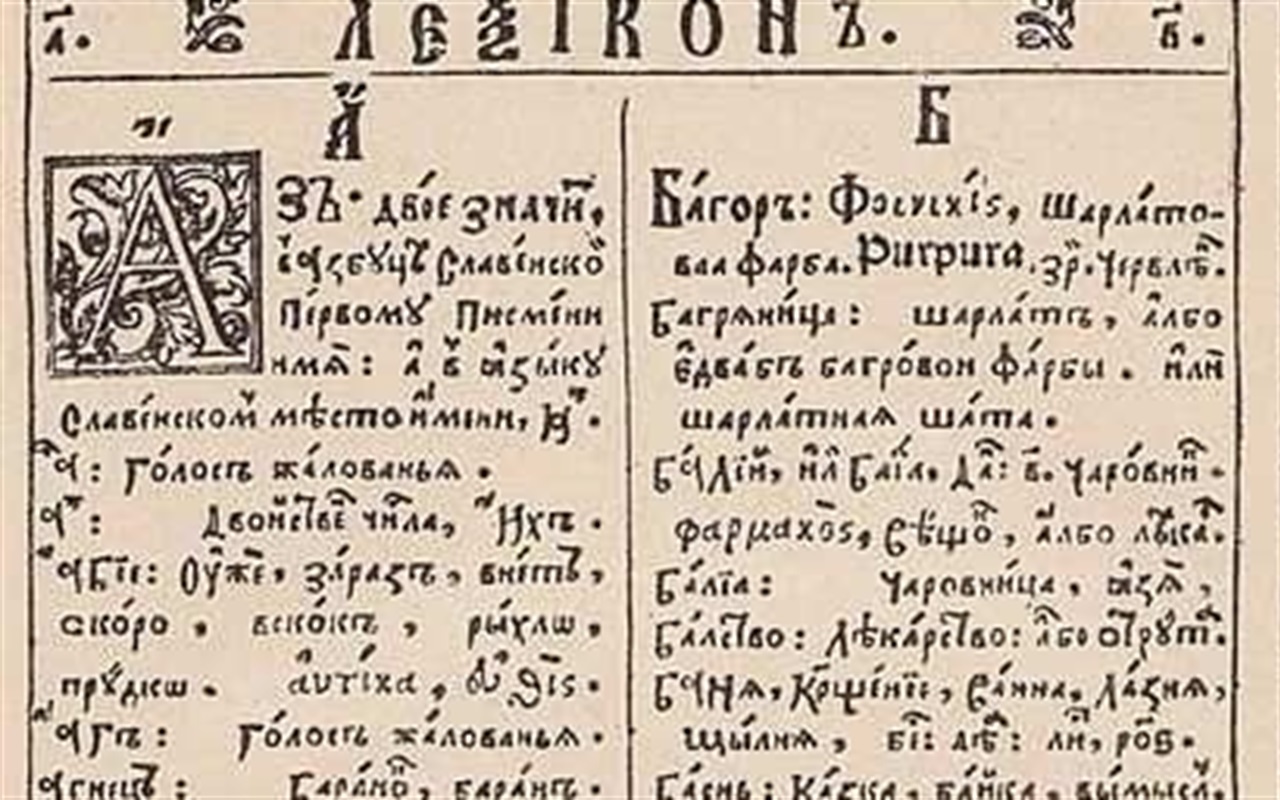 а҃. ЛЕѮІКОНЪ. в҃.
А
АЗЪ· двое значи́т,
в̾ азбуцѣ Славе́нско
Пе́рвому Писме́ни
имѧ: а в ꙗзы́ку
Славе́нском мѣстоиме́ни,
А: Го́лосъ жа́лованьѧ.
Двойстве числа, Ихъ.
Абїе: Ѹ҆же, за́разъ, внетъ,
ско́ро, вско́кѣ, ры́хлѡ,
прꙋ́дкѡ. αυτίκα,
Агъ: Го́лосъ жа́лованьѧ.
Агнецъ: Бара́нъ, бара́нъ.
Б
Ба́горъ: Φοινικίς, шарла́то-
ваа фарба. Purpura. зр. червле.
Багрѧни́ца: шарла́тъ, а́лбо
едва́бъ багро́вои фа́рбы. или
шарла́тнаѧ ша́та.
Ба́лїй, ил Баїа, Да: в. чаро́вни.
φαρμακος, а́лбо лѣка.
Ба́лїа: чаровни́ца, ꙗзѧ,
Ба́лство: лѣка́рство: а́бо отрꙋт.
Банѧ, Крще́нїе, ва́нна, ла́знѧ,
щы́лнѧ, бі: дѣ: ли, роз.
Ба́снь: Ка́зка, ба́йка, вы́мысл,